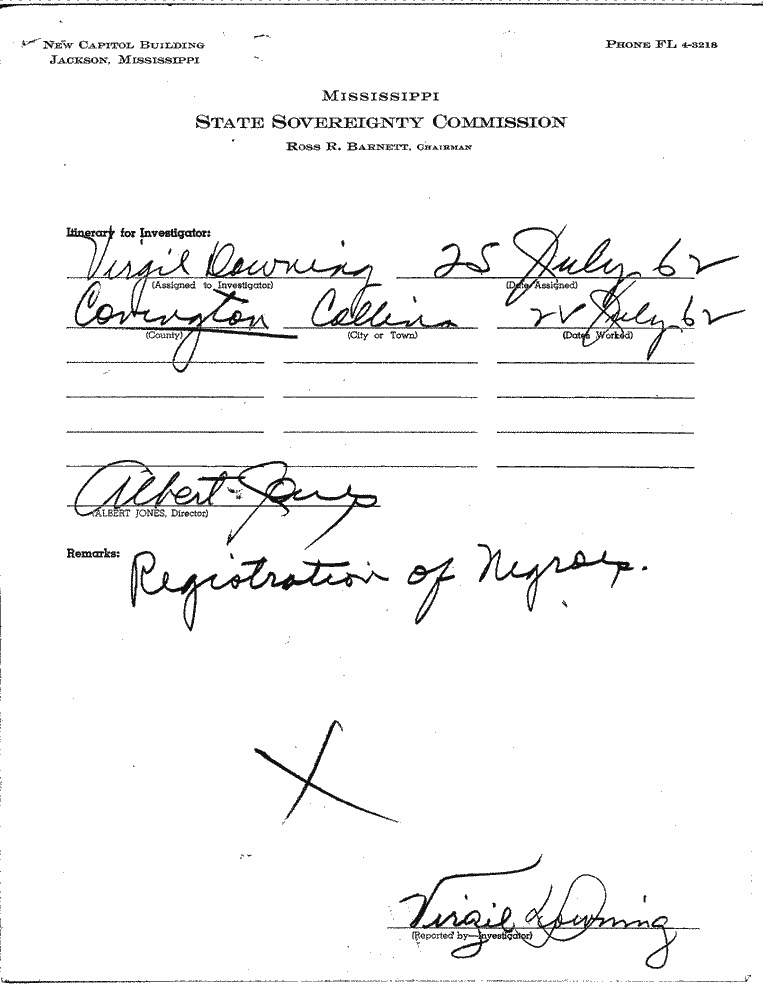 NEW CAPITOL BUILDING
JACKSON, MISSISSIPPI
PHONE FL 4-3218
MISSISSIPPI
STATE SOVEREIGNTY COMMISSION
ROSS R. BARNETT, CHAIRMAN
Itinerary for Investigator:
Virgil Downing 25 July 62
(Assigned to Investigator) (Date Assigned)
Covington Collins July 62
(County) (City or Town) (Dates Worked)
Albert Jones
(ALBERT JONES, Director)
Remarks: Registration of Negroes.
Virgil Downing
(Reported by—Investigator)